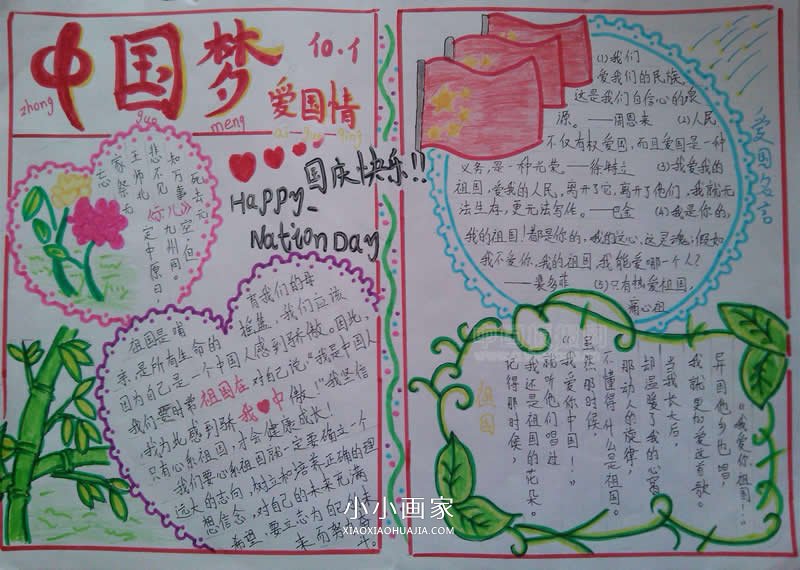 中国梦
zhong guo meng
10.1
爱国情
ai guo qing
国庆快乐!!
Happy
Nation Day
《示儿》
死去元
知万事空，但
悲不见九州同。
王师北定中原日，
家祭无
忘
祖国是咱
有我们的母
亲，是所有生命的摇篮，我们应该
因为自己是一个中国人感到骄傲。因此，
我们要时常对自己说："我是中国人
祖国在我♥中
我为此感到骄傲！"我坚信
只有心系祖国，才会健康成长！
我们要心系祖国就一定要确立一个
远大的志向，树立和培养正确的理
想信念，对自己的未来充满
希望，要立志为
未来而
爱国名言
(1)我们
爱我们的民族，
这是我们自信心的泉
源。——周恩来 (2)人民
不仅有权爱国，而且爱国是一种
义务，是一种光荣。——徐特立 (3)我爱我的
祖国，爱我的人民，离开了它，离开了他们，我就无
法生存，更无法写作。——巴金 (4)我是你的，
我的祖国！都是你的，我的这心，这灵魂；假如
我不爱你，我的祖国，我能爱哪一个人？
——裴多菲 (5)只有热爱祖国，
痛心祖
"我爱你祖国！"
异国他乡也唱，
我就更加爱这首歌。
当我长大后，
却温暖了我的心窝
那动人的旋律，
不懂得什么是祖国。
虽然那时候
"我爱你中国！"
就听他们唱过
我还是祖国的花朵。
记得那时候，
祖国
小小画家
XIAOXIAOHUAJIA.COM